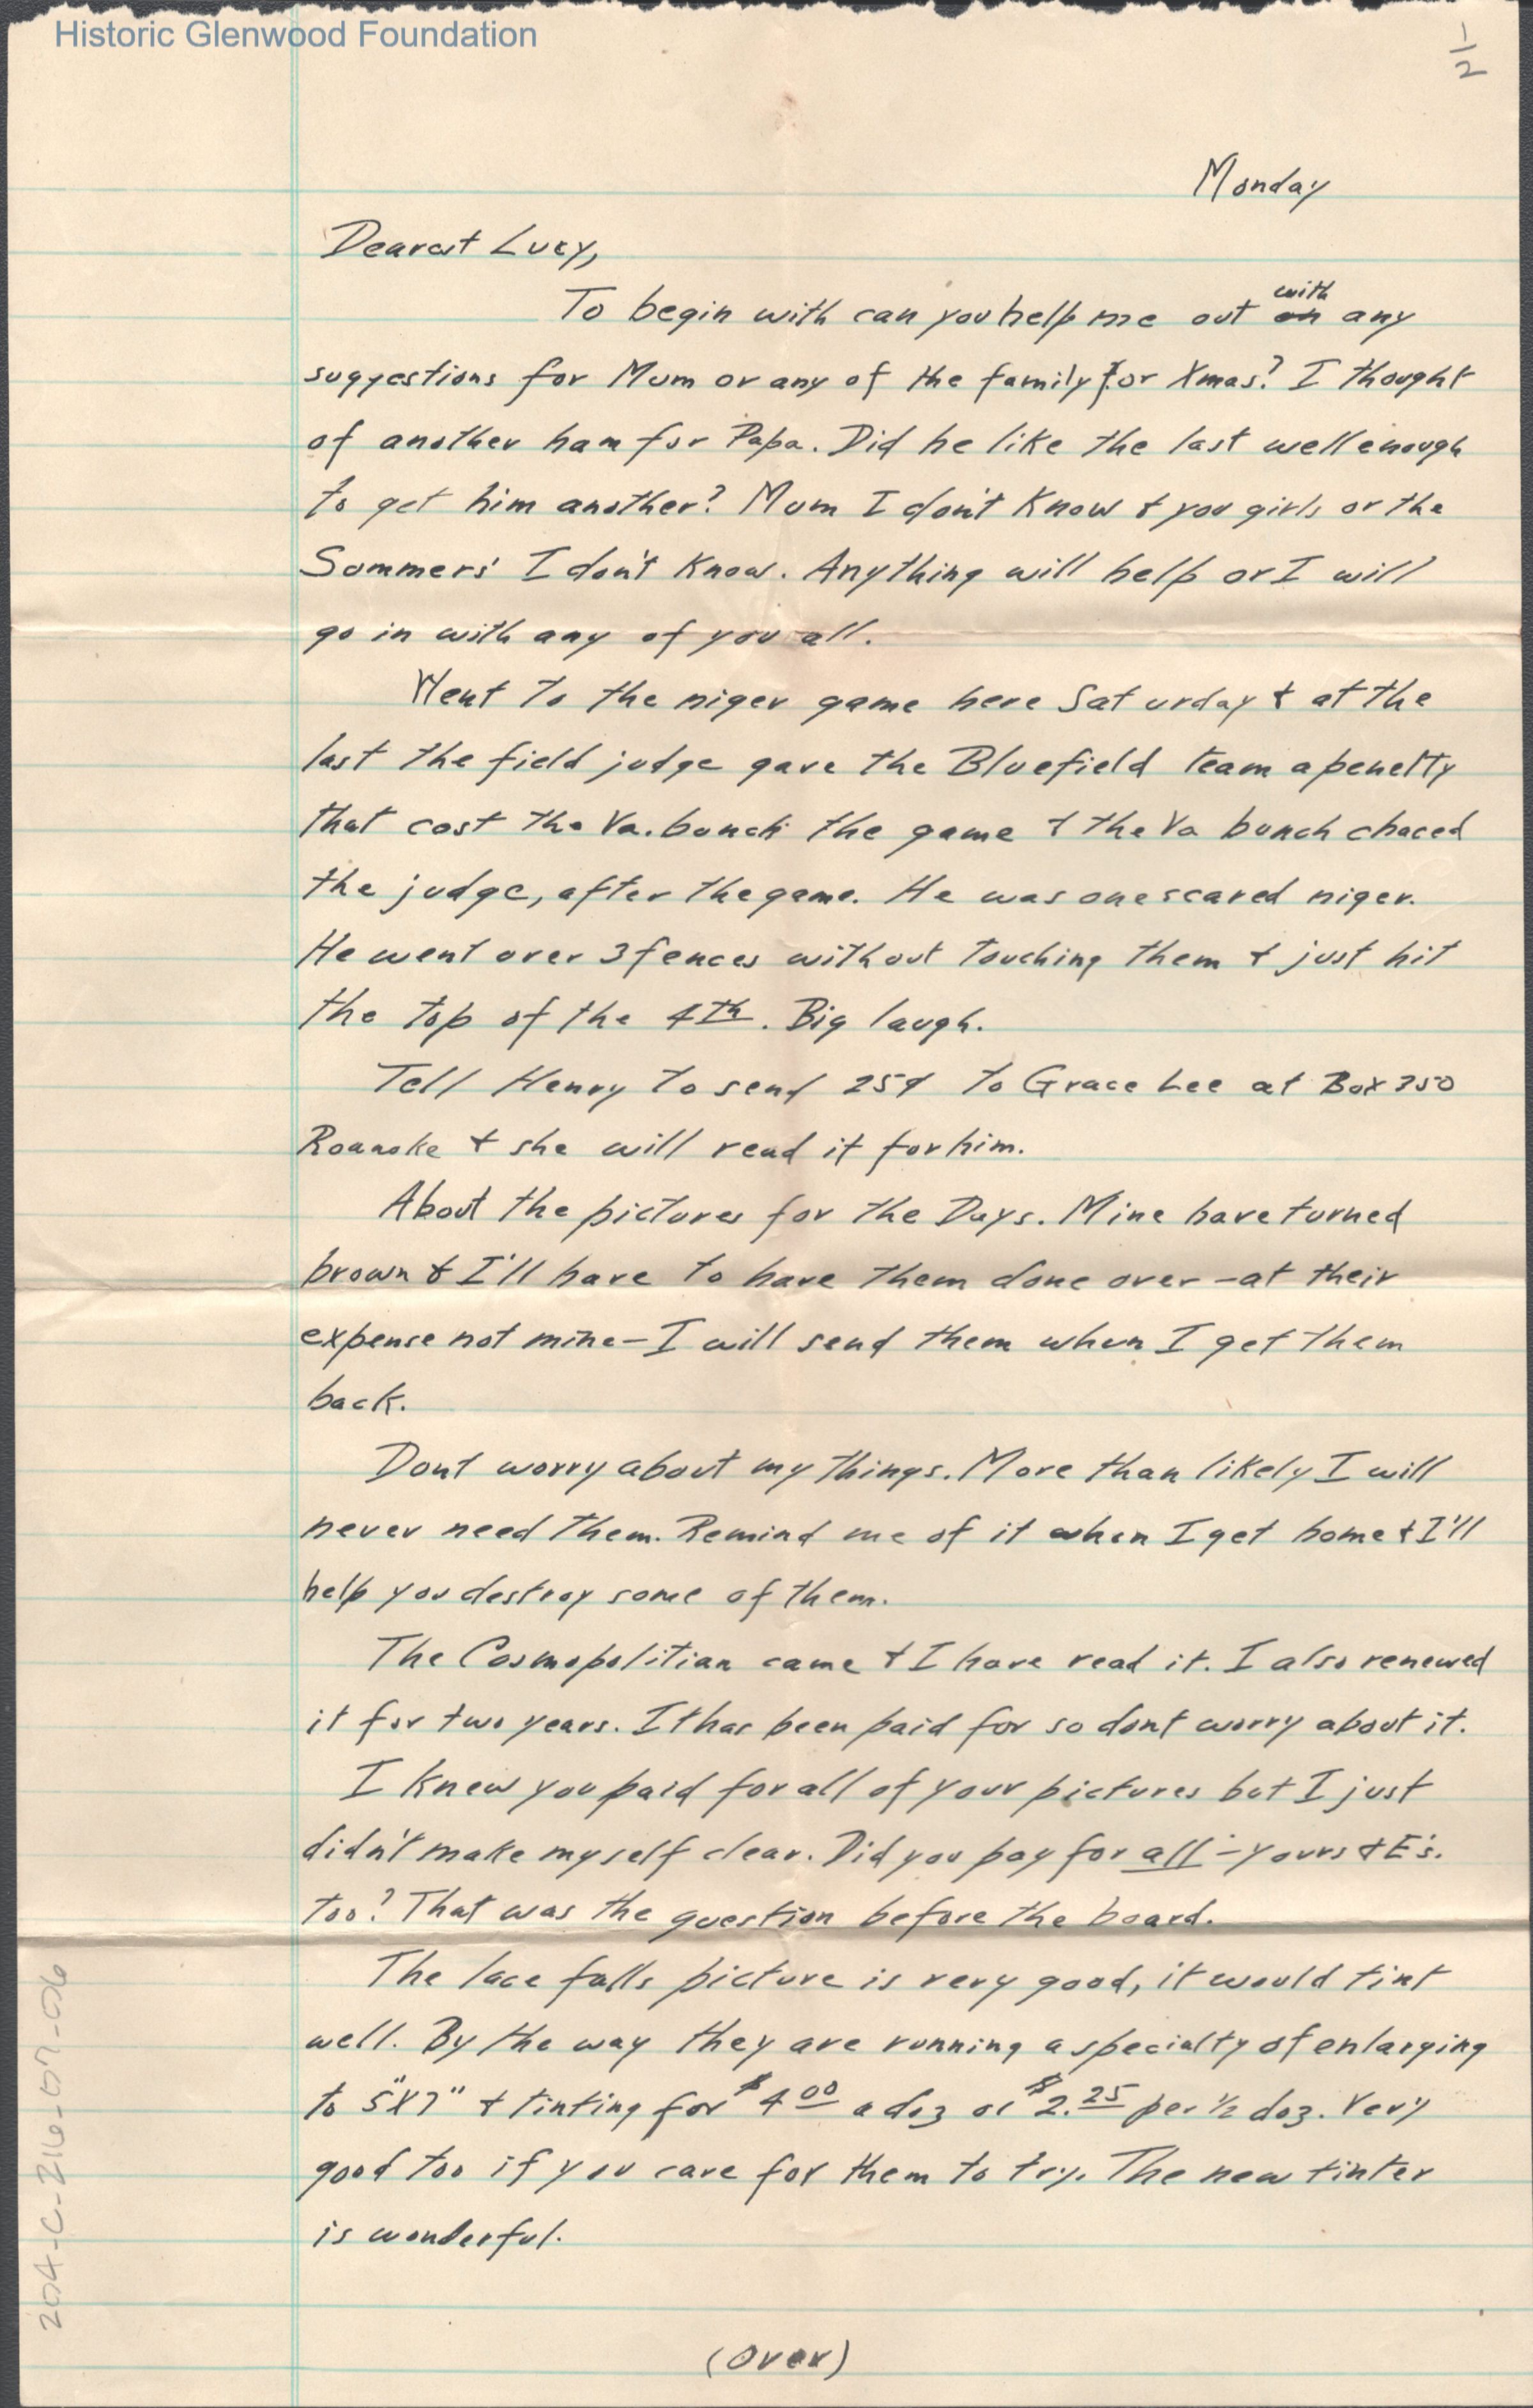 Historic Glenwood Foundation
1/2
Monday
Dearest Lucy,
To begin with can you help me out ~~on~~ with any
suggestions for Mum or any of the family for Xmas? I thought
of another ham for Papa. Did he like the last well enough
to get him another? Mum I don't know & you girls or the
Sommers' I don't know. Anything will help or I will
go in with any of you all.
Went to the niger game here Saturday & at the
last the field judge gave the Bluefield team a penelty
that cost the Va. bunch the game & the Va bunch chaced
the judge, after the game. He was one scared niger.
He went over 3 fences without touching them & just hit
the top of the 4th. Big laugh.
Tell Henry to send 25¢ to Grace Lee at Box 350
Roanoke & she will read it for him.
About the pictures for the Days. Mine have turned
brown & I'll have to have them done over — at their
expense not mine — I will send them when I get them
back.
Dont worry about my things. More than likely I will
never need them. Remind me of it when I get home & I'll
help you destroy some of them.
The Cosmopolitian came & I have read it. I also renewed
it for two years. It has been paid for so dont worry about it.
I knew you paid for all of your pictures but I just
didn't make myself clear. Did you pay for all — yours & E's.
too? That was the question before the board.
The lace falls picture is very good, it would tint
well. By the way they are running a specialty of enlarging
to 5"X7" & tinting for $4.00 a doz or $2.25 per ½ doz. Very
good too if you care for them to try. The new tinter
is wonderful.
(over)
204-C-216-07-06